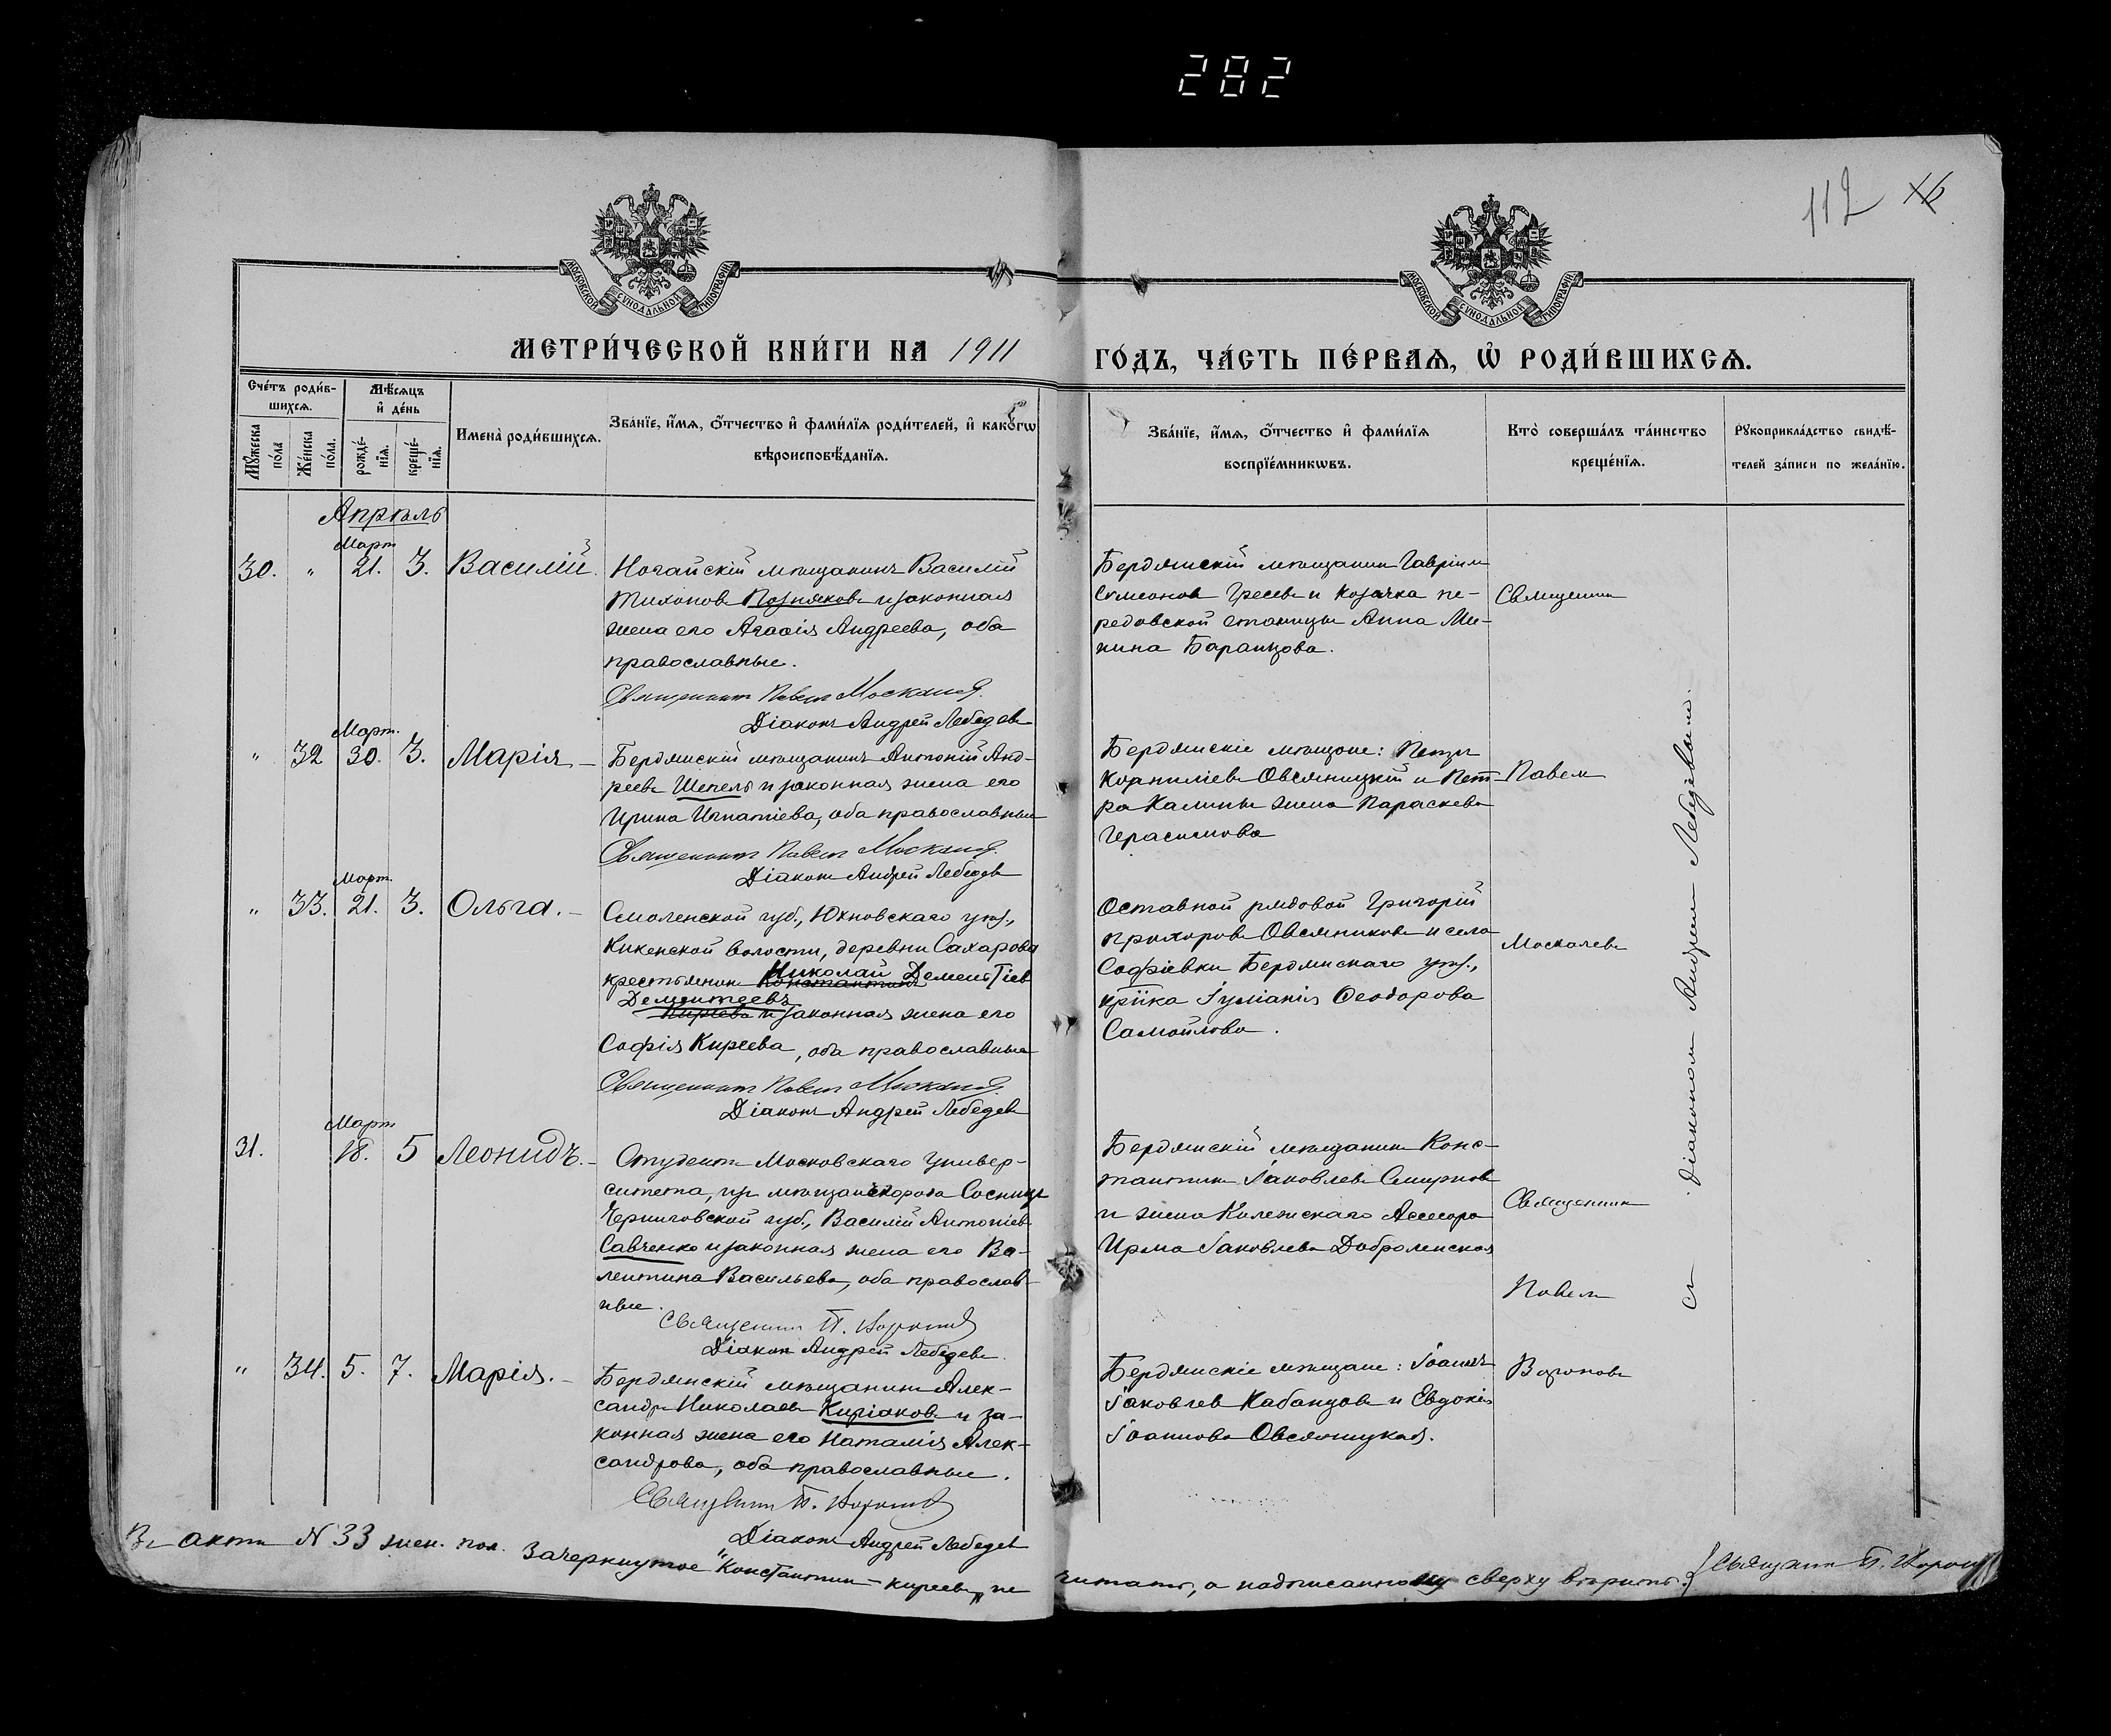 282
112
МОСКОВСКОЙ СѴНОДАЛЬНОЙ ТИПОГРАФІИ
МОСКОВСКОЙ СѴНОДАЛЬНОЙ ТИПОГРАФІИ
МЕТРИ́ЧЕСКОЙ КНИ́ГИ НА 1911
ГО́ДЪ, ЧА́СТЬ ПЕ́РВАЯ, Ѡ РОДИ́ВШИХСЯ.
Сче́тъ роди́в-
шихся.
Мѣ́сяцъ
и де́нь
Мꙋ́жеска
по́ла
Же́нска
по́ла.
рожде́-
нїя.
креще́-
нїя.
Имена̀ роди́вшихся.
Зва́нїе, и́мя, ѻ́тчество и фами́лїя роди́телей, и како́гѡ
вѣроисповѣ́данїя.
Зва́нїе, и́мя, ѻ́тчество и фами́лїя
воспрїе́мникѡвъ.
Кто̀ соверша́лъ та́инство
креще́нїя.
Рꙋкоприкла́дство свидѣ́-
телей за́писи по жела́нїю.
Апрѣль
Март
30. " 21. 3. Василій.
Ногайскій мѣщанинъ Василій
Тихоновъ Позняковъ и законная
жена его Агафія Андреева, оба
православные.
Священникъ Павелъ Москалевъ
Діаконъ Андрей Лебедевъ
Бердянскій мѣщанинъ Гавріилъ
Симеоновъ Гресевъ и козачка пе-
редовской станицы Анна Ми-
нина Баранцова.
Священникъ
Март.
" 32 30. 3. Марія
Бердянскій мѣщанинъ Антоній Анд-
реевъ Шепель и законная жена его
Ирина Игнатіева, оба православные
Священникъ Павелъ Москалевъ
Діаконъ Андрей Лебедевъ
Бердянскіе мѣщане: Петръ
Корниліевъ Овсяницкій и Пет-
ра Калины жена Параскева
Герасимова
Павелъ
Март.
" 33. 21. 3. Ольга.
Смоленской губ., Юхновскаго уѣз.,
Кикенской волости, деревни Сахарова
Николай
крестьянинъ Константинъ Дементіев
Дементеевъ
Киреевъ и законная жена его
Софія Киреева, оба православные
Священникъ Павелъ Москалевъ
Діаконъ Андрей Лебедевъ
Оставной рядовой Григорій
Прохоровъ Овсянниковъ и села
Софіевки Бердянскаго уѣз.,
кр̃їка Іуліанія Феодорова
Самойлова.
Москалевъ
Март
31. 18. 5 Леонидъ.
Студентъ Московскаго Универ-
ситета, изъ мѣщанъ города Сосницы
Черниговской губ., Василій Антоніев
Савченко и законная жена его Ва-
лентина Васильева, оба православ-
ные.
Священникъ П. Вороновъ
Діакон Андрей Лебедевъ.
Бердянскій мѣщанинъ Конс-
тантинъ Іаковлевъ Смирнов
и жена Колежскаго Ассесора
Ирма Іаковлева Доброленская
Священникъ
Павелъ
" 34. 5. 7. Марія.
Бердянскій мѣщанинъ Алек-
сандръ Николаевъ Киріаковъ и за-
конная жена его Наталія Алек-
сандрова, оба православные.
Священникъ П. Вороновъ
Діаконъ Андрей Лебедев
Бердянскіе мѣщане: Іоаннъ
Іаковлев Кабанцовъ и Евдокія
Іоаннова Овсяницкая.
Вороновъ
съ діакономъ Андреемъ Лебедевымъ.
Въ актѣ N 33 жен. пол. зачеркнутое "Константинъ - киреевъ" не
читать, а надписанному сверху вѣрить. Священникъ П. Ворон